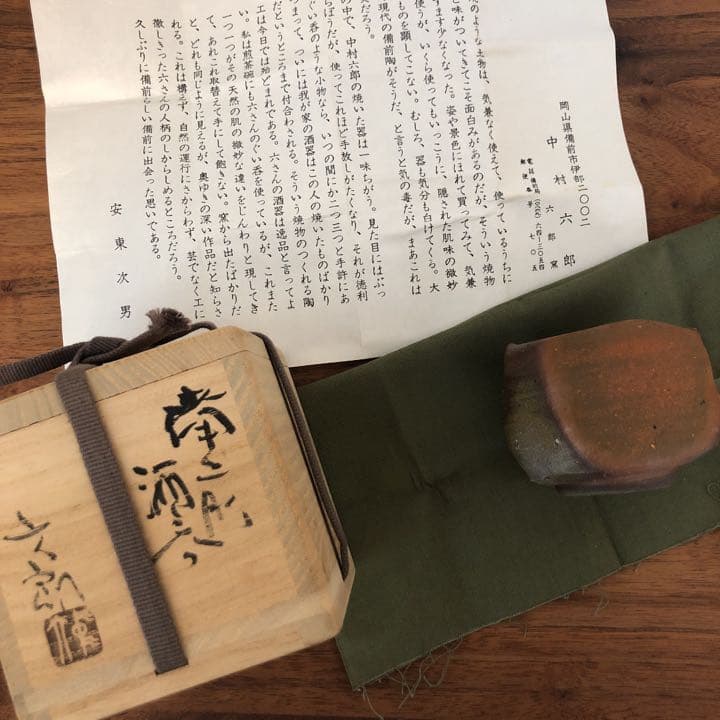 岡山県備前市伊部二〇〇二
中村六郎
六郎窯
電話備前局（〇八六九）六四－三〇五四
郵便番号七〇五
ような土物は、気兼なく使えて、使っているうちに
味がついてきてこそ面白みがあるのだが、そういう焼物
ますます少なくなった。姿や景色にほれて買ってみて、気兼
使うが、いくら使ってもいっこうに、隠された肌味の微妙
ものを顕してこない。むしろ、器も気分も白けてくる。大
現代の備前陶がそうだ、と言うと気の毒だが、まあこれは
だろう。
の中で、中村六郎の焼いた器は一味ちがう。見た目にはぶっ
らぼうだが、使ってこれほど手放しがたくなり、それが徳利
ぐい呑のような小物なら、いつの間にか二つ三つと手許にあ
まって、ついには我が家の酒器はこの人の焼いたものばかり
だというところまで付合わされる。そういう焼物のつくれる陶
工は今日では殆どまれである。六さんの酒器は逸品と言ってよ
い。私は煎茶碗にも六さんのぐい呑を使っているが、これまた
一つ一つがその天然の肌の微妙な違いをじんわりと現してき
て、あれこれ取替えて手にして飽きない。窯から出たばかりだ
と、どれも同じように見えるが、奥ゆきの深い作品だと知らさ
れる。これは構えず、自然の運行にさからわず、芸でなく工に
徹しきった六さんの人柄のしからしめるところだろう。
久しぶりに備前らしい備前に出会った思いである。
安東次男
酒呑
六郎